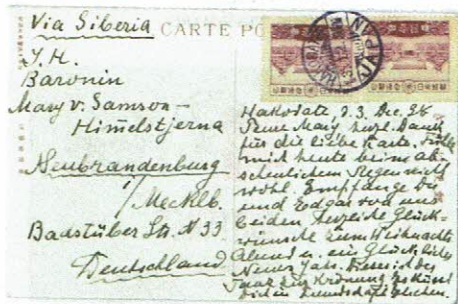 Via Siberia
CARTE PO
I. H.
Baronin
Mary v. Samson-
Himelstjerna
Neubrandenburg
i/Mecklb.
Badstüber Str. N 33
Deutschland
JAPAN
Hakodate, d. 3. Dez. 36
Mary, herzl. Dank
für die liebe Karte.
mich heute beim ab-
scheulichem Regen nicht
wohl. Empfange Du
und Edgar von uns
beiden herzliche Glück-
wünsche zum Weihnachts
Abend u. ein Glückliches
Neues Jahr. Dieses ist das
Paar zur Krönung